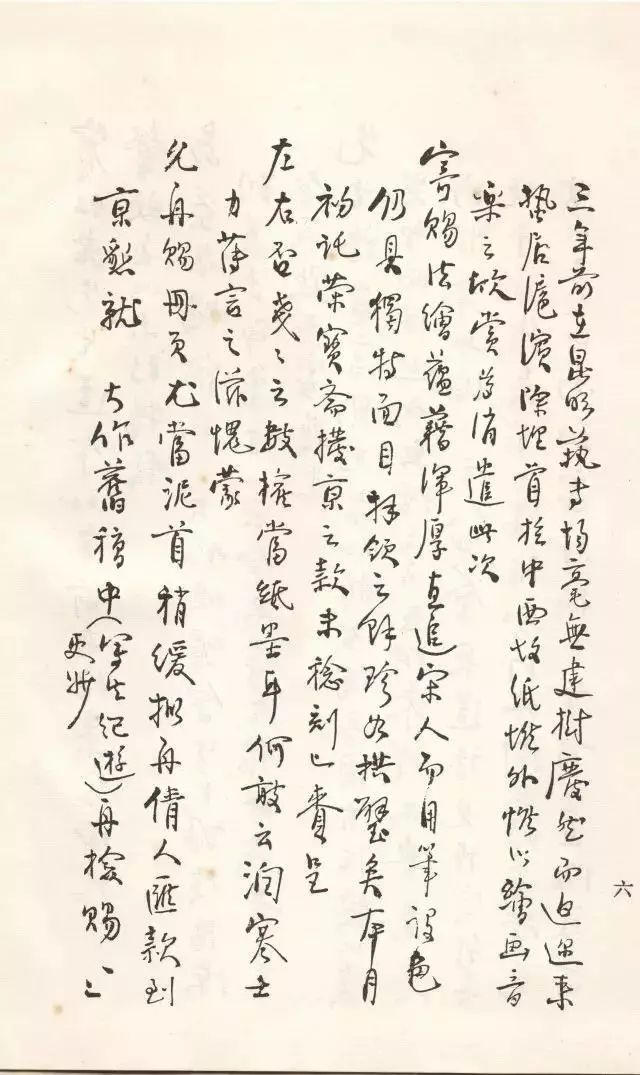 三年前在昆明藝專毫無建樹廢然而返邇來
蟄居滬濱除埋首於中西故紙堆外惟以繪畫音
樂之欣賞為消遣此次
寄賜法繪蘊藉渾厚直追宋人而用筆設色
仍具獨特面目拜領之餘珍如拱璧矣本月
初託榮寶齋撥京之款未稔刻已賫呈
左右否戔戔之數權當紙墨耳何敢云潤寒士
力薄言之滋愧蒙
允再賜冊頁尤當泥首稍緩擬再倩人匯款到
京懇就　大作舊稿中（寫生紀遊）再檢賜一二
更妙
六